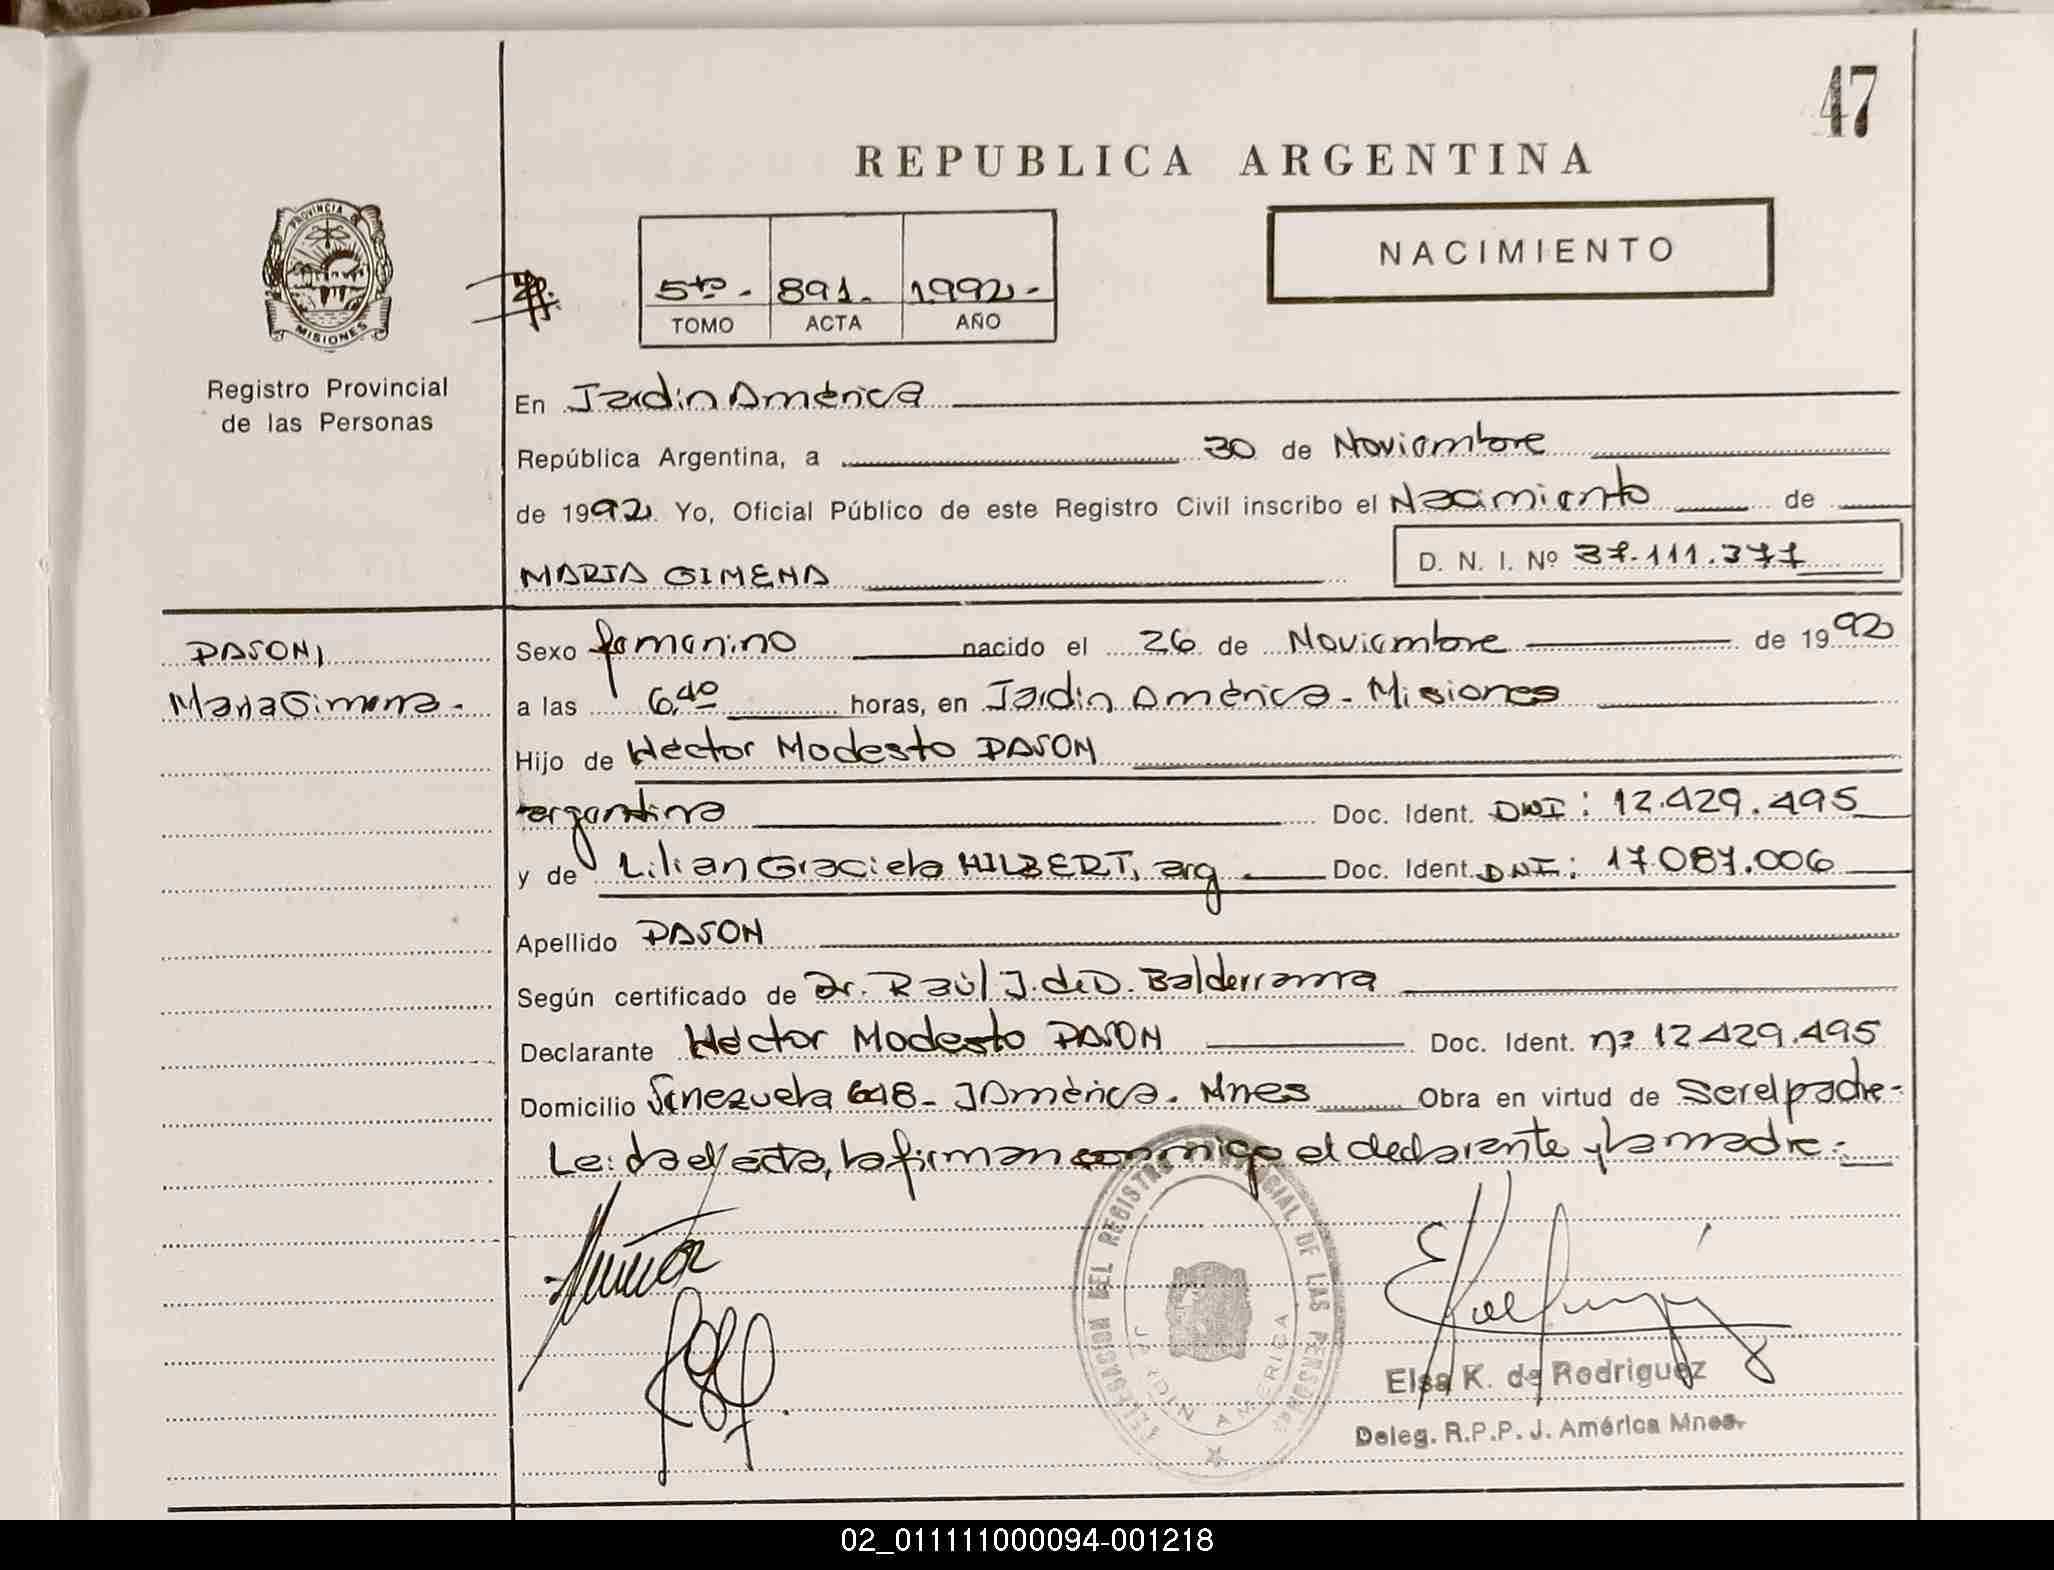 47
REPUBLICA ARGENTINA
NACIMIENTO
5to. - 891. 1992 -
TOMO ACTA AÑO
PROVINCIA DE
MISIONES
Registro Provincial
de las Personas
En Jardin América
República Argentina, a 30 de Noviembre
de 1992 Yo, Oficial Público de este Registro Civil inscribo el Nacimiento de
MARIA GIMENA D. N. I. Nº 37.111.377
PASON,
Maria Gimena -
Sexo femenino nacido el 26 de Noviembre de 1992
a las 6,40 horas, en Jardin América - Misiones
Hijo de Héctor Modesto PASON
argentina Doc. Ident. DNI: 12.429.495
y de Lilian Graciela HILBERT, arg Doc. Ident. DNI: 17.087.006
Apellido PASON
Según certificado de Dr. Raúl J. de D. Balderrama
Declarante Héctor Modesto PASON Doc. Ident. nº 12429.495
Domicilio Venezuela 648 - J América. Mnes Obra en virtud de ser el padre -
Leida el acta, la firman conmigo el declarante y la madre. -
DELEGACION DEL REGISTRO PROVINCIAL DE LAS PERSONAS
JARDIN AMERICA
Elsa K. de Rodriguez
Deleg. R.P.P. J. América Mnes.
02_011111000094-001218